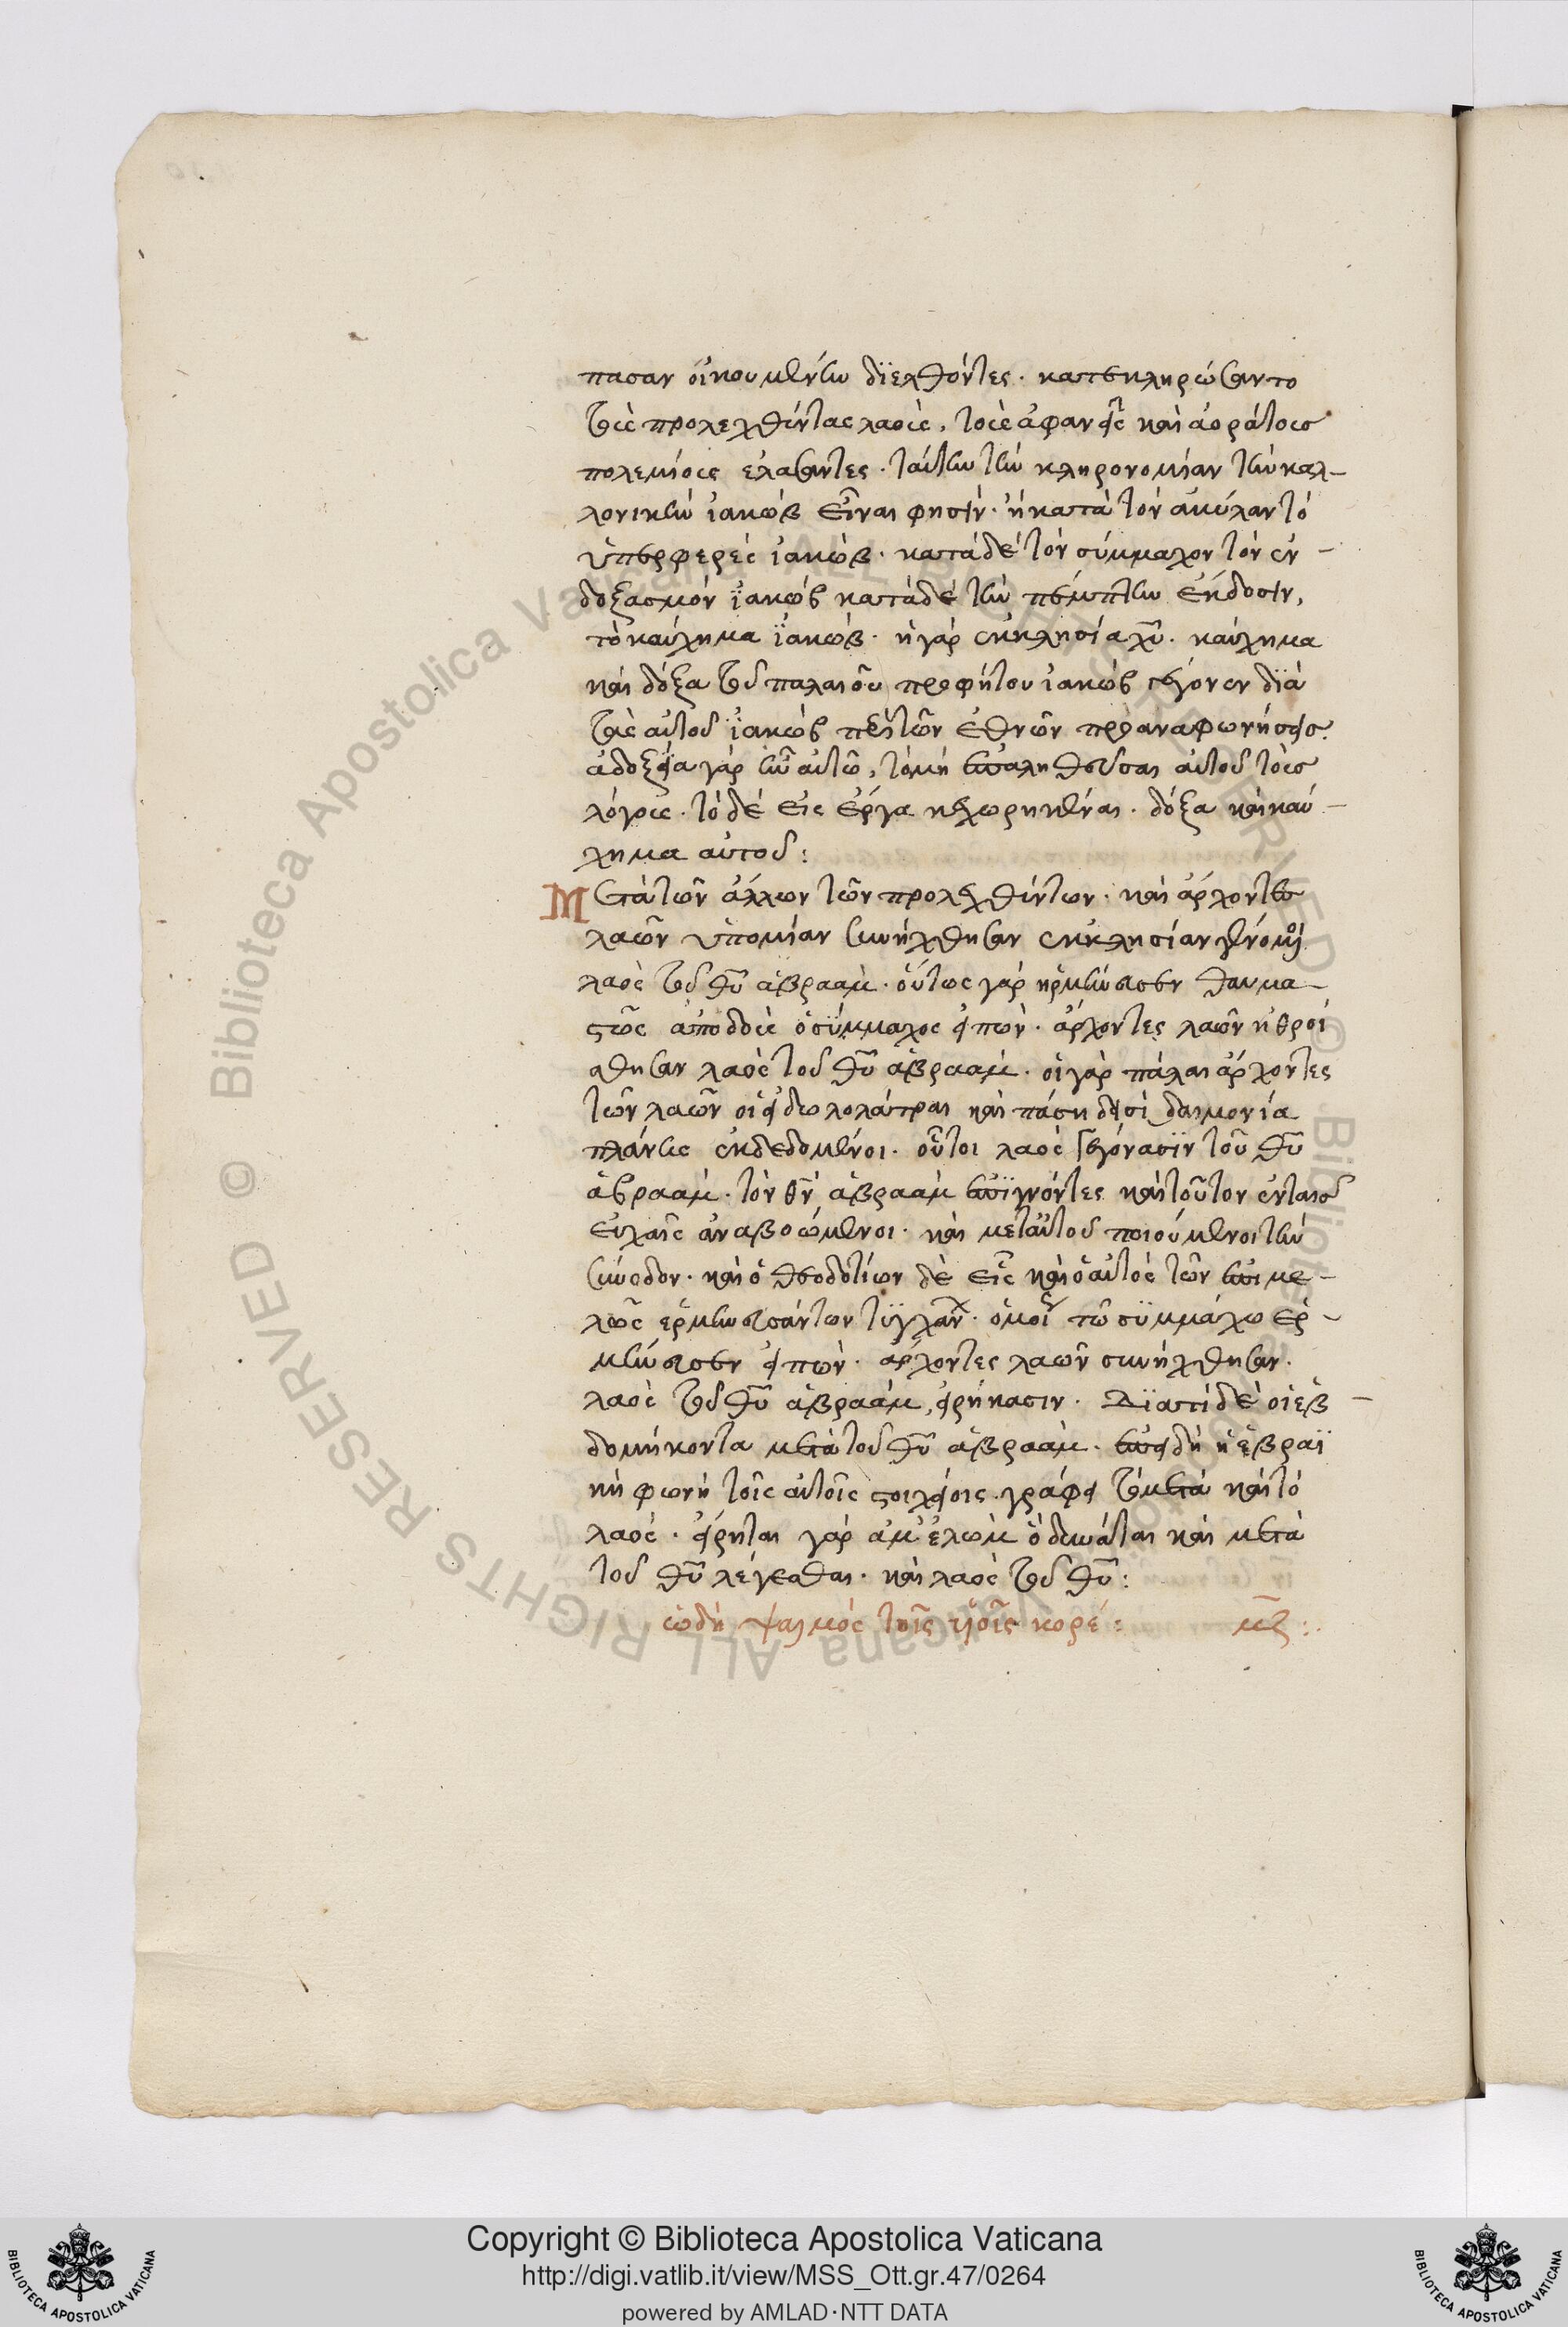 πασαν οἰκουμένην διελθόντες. κατεκληρώσαντο
τοὺς προλεχθέντας λαοὺς, τοὺς ἀφανεῖς καὶ ἀοράτοις
πολεμίοις ἐλάσαντες. ταύτην τὴν κληρονομίαν τὴν καλ-
λονικὴν ἰακὼβ εἶναι φησὶν. ἢ κατὰ τὸν ἀκύλαν τὸ
ὑπερφερὲς ἰακὼβ. κατὰ δὲ τὸν σύμμαχον τὸν ἐν-
δοξασμὸν ἰακὼβ κατὰ δὲ τὴν πέμπτην ἔκδοσιν,
τὸ καύχημα ἰακὼβ. ἡ γὰρ ἐκκλησία χῦ. καύχημα
καὶ δόξα τοῦ παλαιοῦ προφήτου ἰακὼβ γέγονεν διὰ
τὰς αὐτοῦ ἰακὼβ περὶ τῶν ἐθνῶν προαναφωνήσεις.
ἀδοξία γὰρ ἦν αὐτῶ, τὸ μὴ ἐπαληθεῦσαι αὐτοῦ τοῖς
λόγοις. τὸ δὲ εἰς ἔργα κεχωρηκέναι. δόξα καὶ καύ-
χημα αὐτοῦ:
Μετὰ τῶν ἄλλων τῶν προλεχθέντων. καὶ ἄρχοντες
λαῶν ὑπὸ μίαν συνήχθησαν ἐκκλησίαν γενόμενοι
λαὸς τοῦ θῦ ἀβραὰμ. οὕτως γὰρ ἡρμήνευσεν θαυμα-
στῶς ἀποδοὺς ὁ σύμμαχος εἰπὼν. ἄρχοντες λαῶν ἠθροί
σθησαν λαὸς τοῦ θῦ ἀβραὰμ. οἱ γὰρ πάλαι ἄρχοντες
τῶν λαῶν οἱ εἰδωλολάτραι καὶ πάση δεισιδαιμονία
πλάνης ἐκδεδομένοι. οὗτοι λαὸς γεγόνασιν τοῦ θῦ
ἀβραὰμ. τὸν θν ἀβραὰμ ἐπιγνόντες καὶ τοῦτον ἐν ταῖς
εὐχαῖς ἀναβοώμενοι. καὶ μετ' αὐτοῦ ποιούμενοι τὴν
σύνοδον. καὶ ὁ θεοδοτίων δὲ εἷς καὶ ὁ αὐτὸς τῶν ἐπιμε-
λῶς ἑρμηνευσάντων τυγχάν. ὁμοί τῶ συμμάχω ἑρ-
μήνευσεν εἰπὼν. ἄρχοντες λαῶν συνήχθησαν.
λαὸς τοῦ θῦ ἀβραὰμ, εἰρήκασιν. Διατί δὲ οἱ ἑβ-
δομήκοντα μετὰ τοῦ θῦ ἀβραὰμ. ἐπειδὴ ἡ ἑβραϊ
κὴ φωνὴ τοῖς αὐτοῖς στοιχείοις. γράφει τὸ μετὰ καὶ τὸ
λαὸς. εἴρηται γὰρ ἀμ' ἐλωὶμ ὃ δύναται καὶ μετὰ
τοῦ θῦ λέγεσθαι. καὶ λαὸς τοῦ θῦ:
ὠδὴ ψαλμὸς τοῖς υἱοῖς κορέ: μζ:
Copyright © Biblioteca Apostolica Vaticana
http://digi.vatlib.it/view/MSS_Ott.gr.47/0264
powered by AMLAD·NTT DATA
BIBLIOTECA APOSTOLICA VATICANA
BIBLIOTECA APOSTOLICA VATICANA
Biblioteca Apostolica Vaticana ALL RIGHTS RESERVED ©